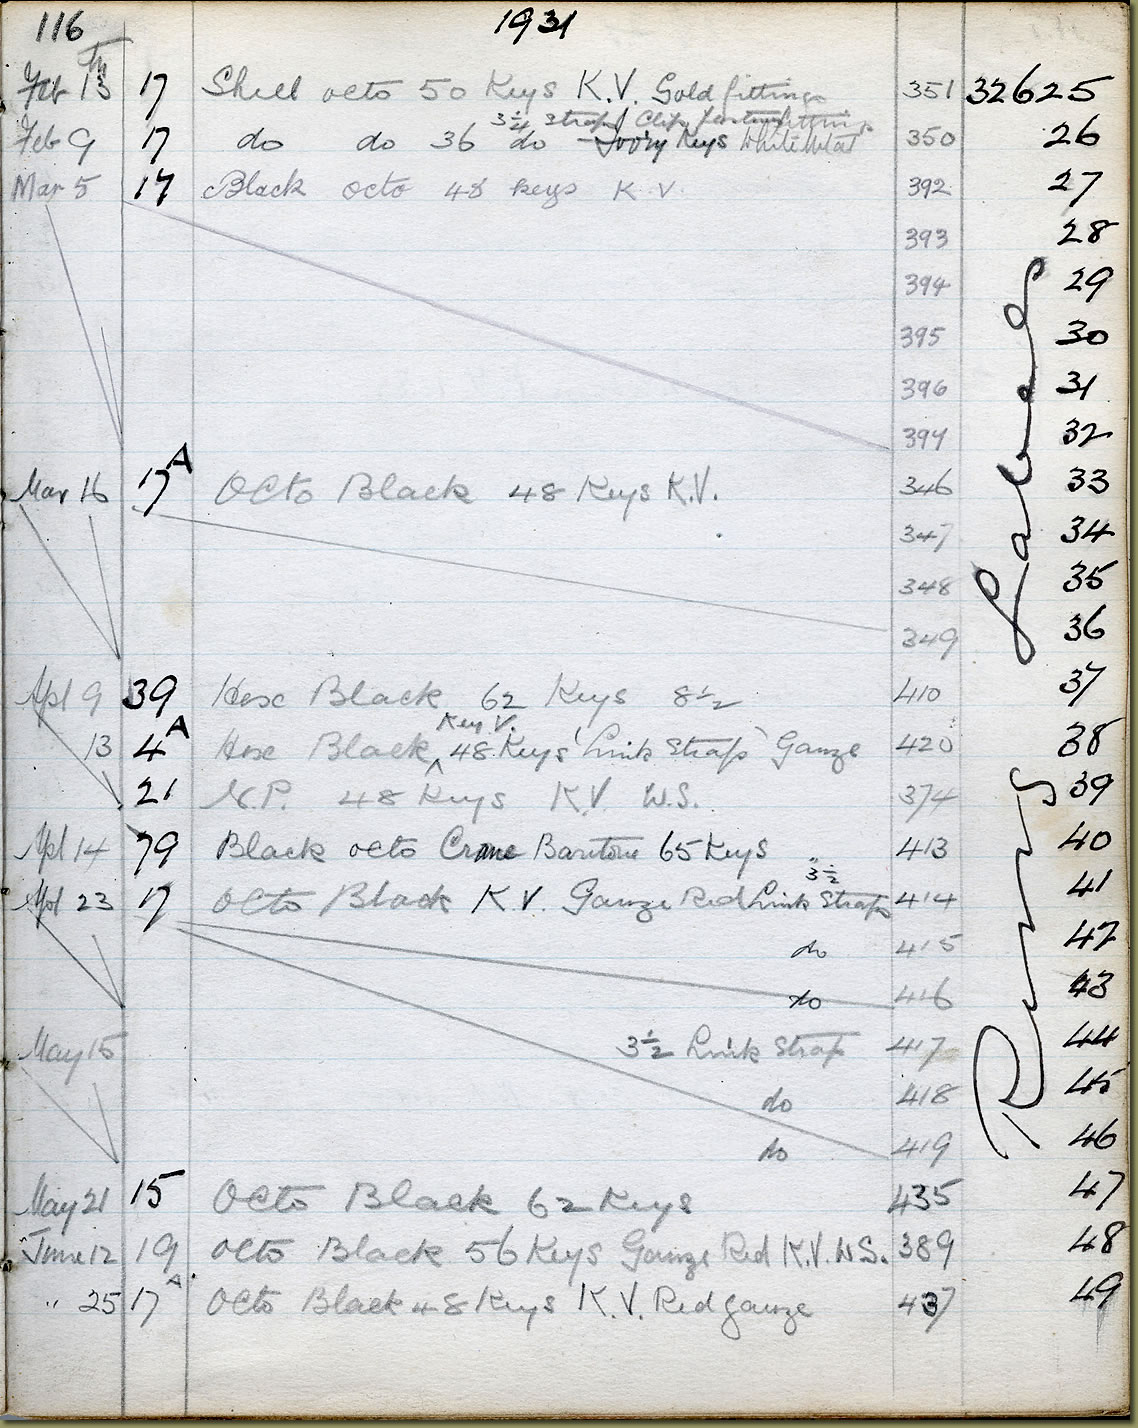 116 1931
Feb 13 17 Shell octo 50 Keys K.V. Gold fittings 351 32625
3 1/4 Straps Clip fastening fittings
Feb 9 17 do do 36 do Ivory Keys White Metal 350 26
Mar 5 17 Black octo 48 keys K V. 392 27
393 28
394 29
395 30
396 31
397 32
Mar 16 17 A Octo Black 48 Keys K.V. 346 33
347 34
348 35
349 36
Apl 9 39 Hex Black 62 Keys 8 1/2 410 37
Key V.
13 4 A Hex Black ^ 48 Keys 'Link Strap' Gauze 420 38
21 N.P. 48 Keys K.V. W.S. 374 39
Apl 14 79 Black octo Crane Baritone 65 Keys 413 40
3 1/2"
Apl 23 17 Octo Black K.V. Gauze Red Link Straps 414 41
do 415 42
do 416 43
May 15 3 1/2 Link Strap 417 44
do 418 45
do 419 46
May 21 15 Octo Black 62 Keys 435 47
June 12 19 Octo Black 56 Keys Gauze Red K.V. W.S. 389 48
" 25 17 A Octo Black 48 Keys K.V. Red gauze 437 49
Runs Label